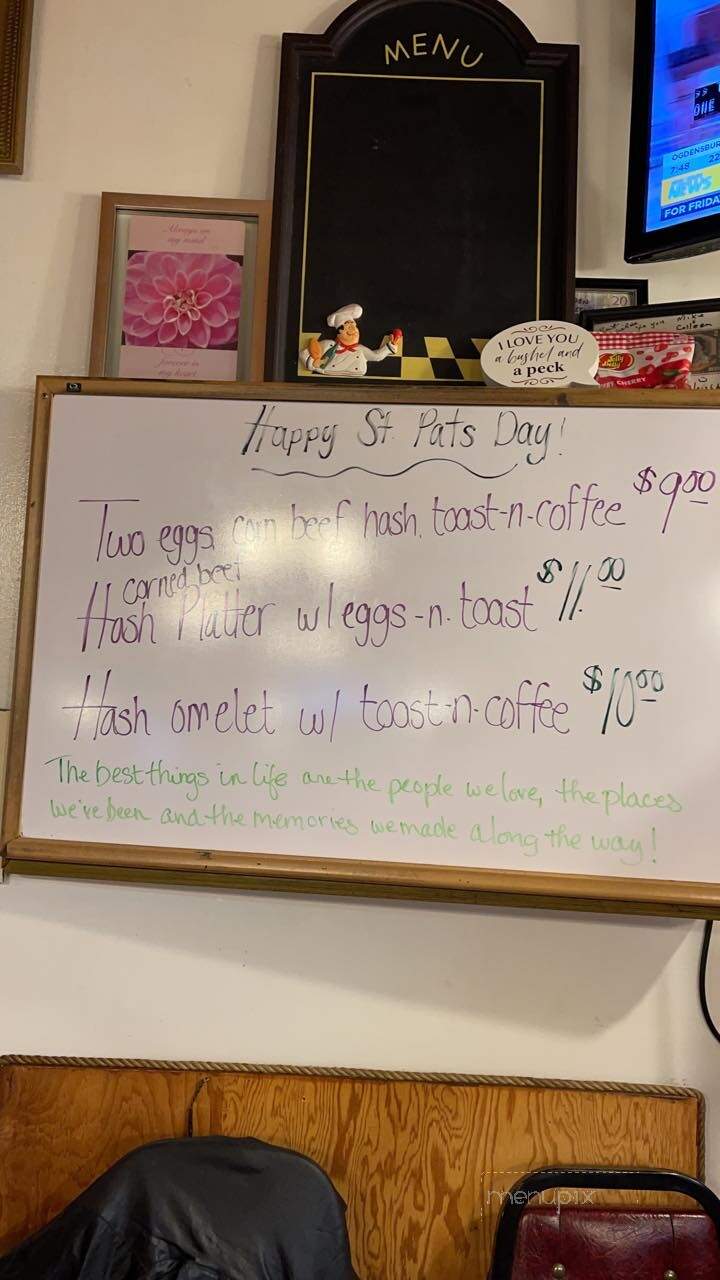 MENU
ONE
OGDENSBUR
7:48 22
NEWS
FOR FRIDA
Always on
my mind
forever in
my heart
20
Mike
Colleen
I LOVE YOU
a bushel and
a peck
Jelly Belly
VERY CHERRY
Happy St. Pats Day!
Two eggs, corn beef hash, toast-n-coffee $9.00
corned beef
Hash Platter w/eggs-n-toast $11.00
Hash omelet w/ toost-n-coffee $10.00
The best things in life are the people we love, the places
we've been and the memories we made along the way!
menupix